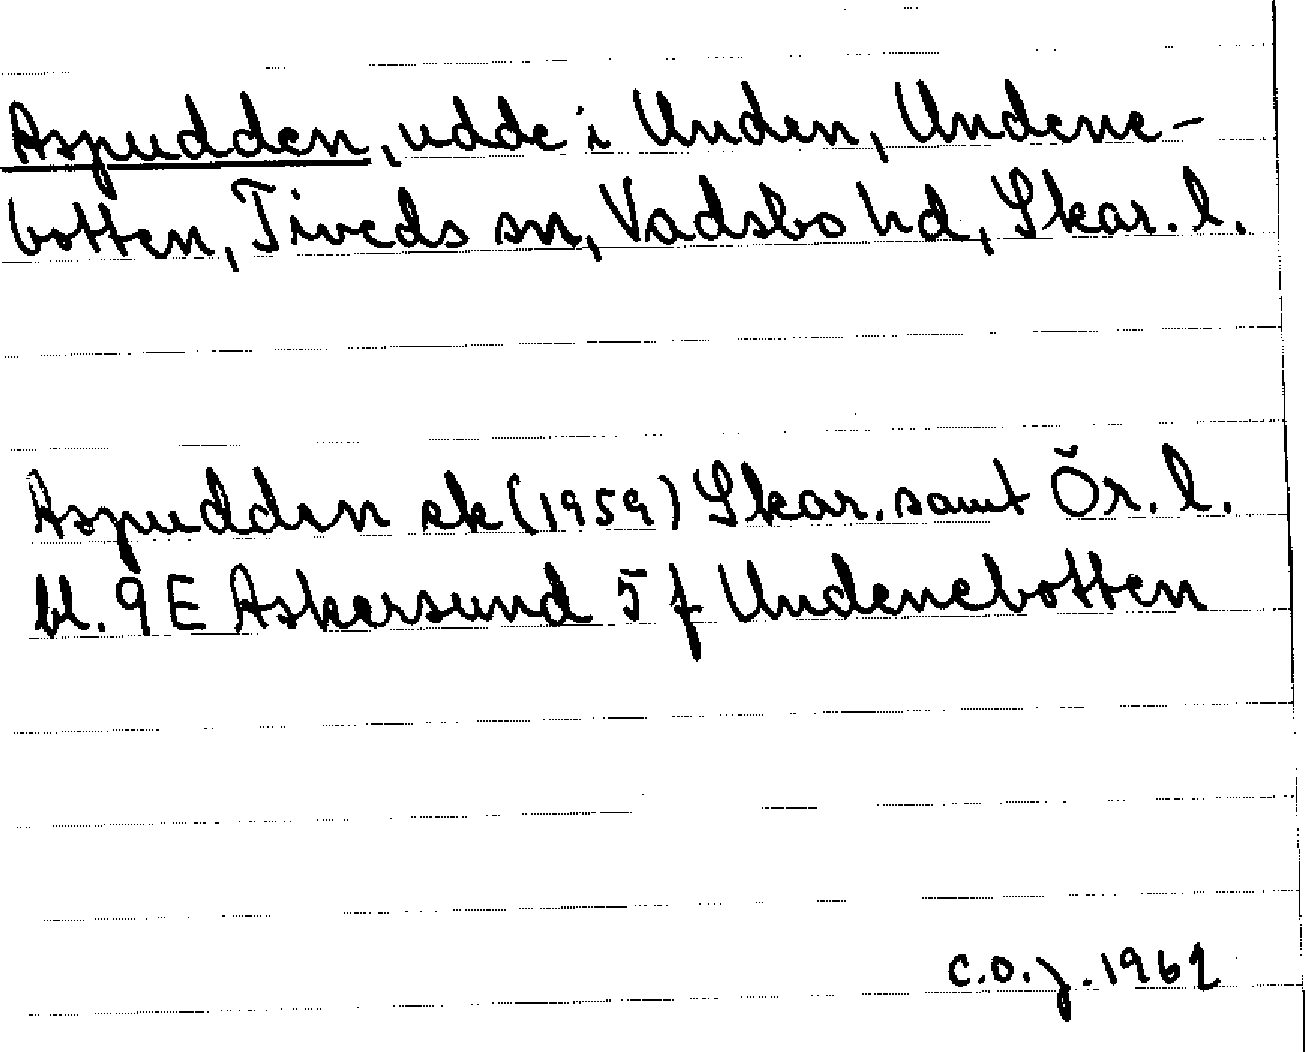 Aspudden, udde i Unden, Undene-
botten, Tiveds sn, Vadsbo hd, Skar. l.
Aspudden ek (1959) Skar. samt Ör. l.
bl. 9 E Askersund 5 f Undenebotten
C.O.J. 1962